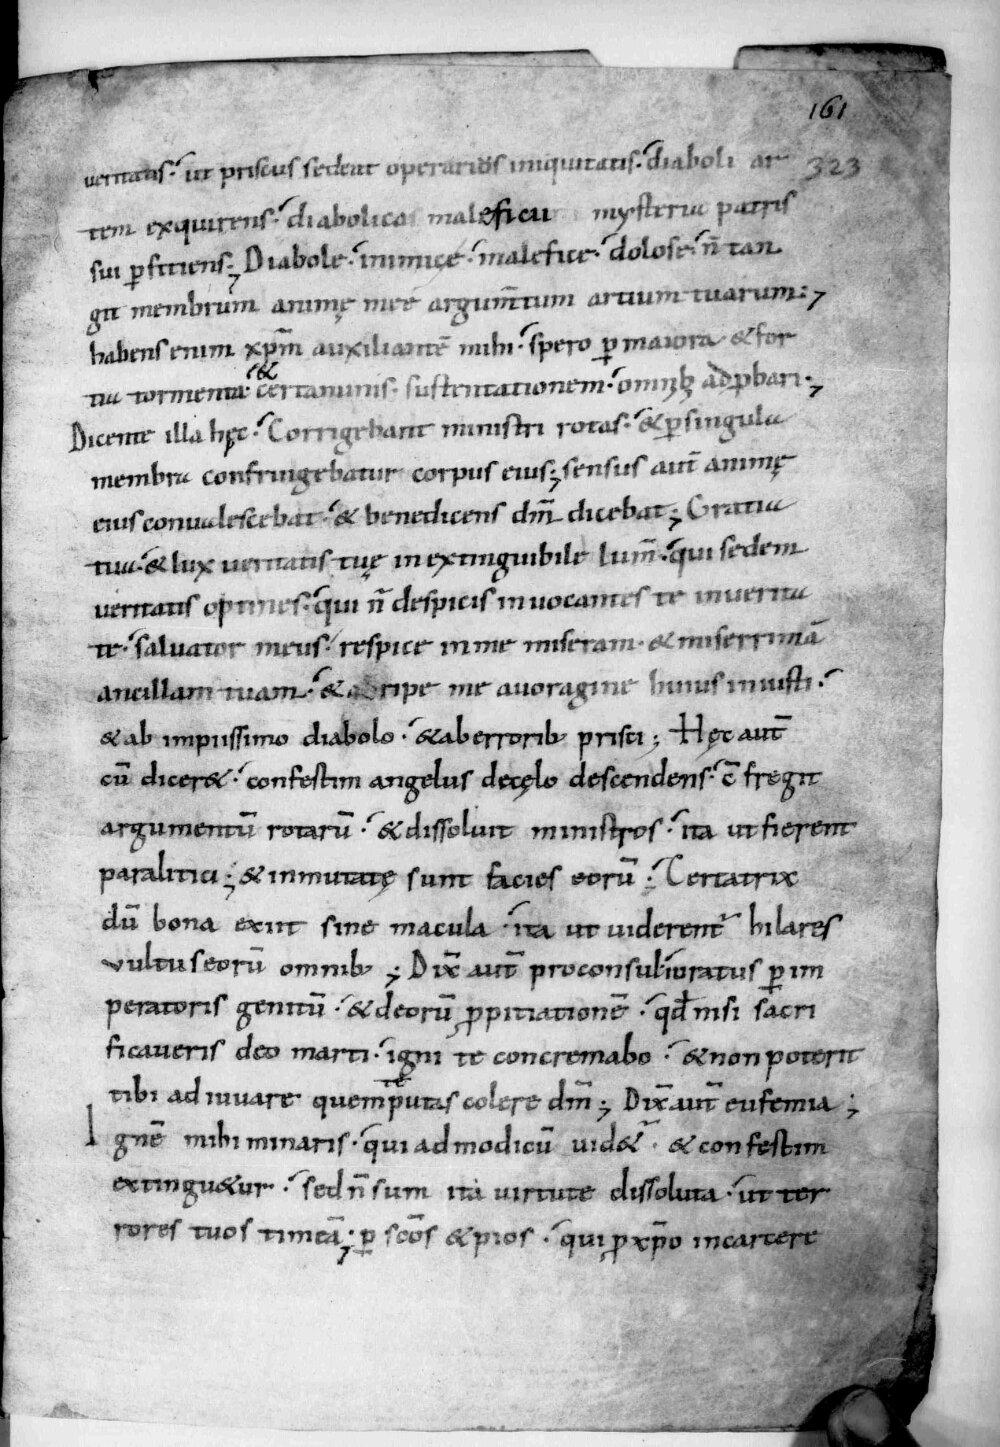 161
veritatis· ut priscus sedeat operarios iniquitatis· diaboli ar 323
tem exquirens· diabolica maleficii mysteria patris
sui ꝑfitiens; Diabole· inimicę· malefice· dolose· n̄ tan
git membrum animę meę argum̄tum artium tuarum;
habens enim xp̄m auxiliantē mihi· spero ꝑ maiora & for
tia tormenta· & certaminis· sustentationem· omnib; adꝓbari;
Dicente illa hęc· Corrigebant ministri rotas· & ꝑ singula
membra confringebatur corpus eius; sensus aut̄ animę
eius conualescebat· & benedicens dn̄m dicebat; Gratia
tua· & lux ueritatis tuę inextinguibile lum̄· qui sedem
veritatis optines· qui n̄ despicis inuocantes te in uerita
te· saluator meus· respice in me miseram· & miserrimā
ancillam tuam· & abripe me auoragine huius iniusti·
& ab impiissimo diabolo· & ab errorib; prisci; Hęc aut̄
cū dicer&· confestim angelus decęlo descendens· c̄fregit
argumentū rotarū· & dissoluit ministros· ita ut fierent
paralitici; & inmutatę sunt facies eorū· Certatrix
dū bona exiit sine macula· ita ut uiderent᷑ hilares
vultus eorū omnib; ; Dix̄ aut̄ proconsul· iuratus ꝑ im
peratoris geniū· & deorū ꝓpitiationē· qd̄ nisi sacri
ficaueris deo marti· igni te concremabo· & non poterit
tibi adiuuare quem te putas colere dn̄m; Dix̄ aut̄ eufemia;
Ignē mihi minaris· qui ad modicū uid&᷑· & confestim
extingu&ur· sed n̄ sum ita uirtute dissoluta· ut ter
rores tuos timeā; ꝑ scōs & pios· qui ꝓ xp̄o incarcere